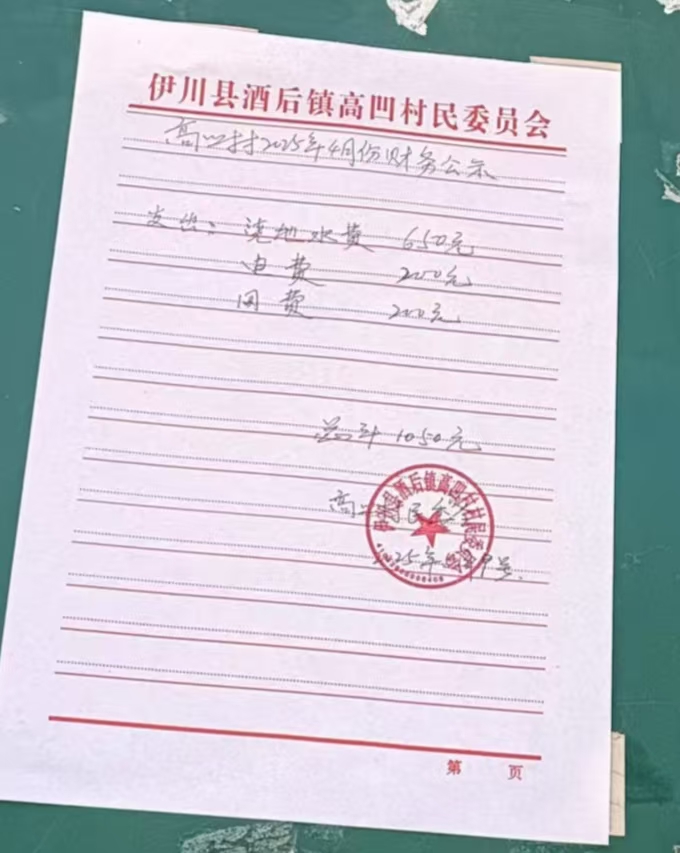 伊川县酒后镇高凹村民委员会
高凹村2025年4月份财务公示
支出：浇地水费 650元
电费 200元
网费 200元
总计 1050元
伊川县酒后镇高凹村村民委员会
高 民委
25年
第 页